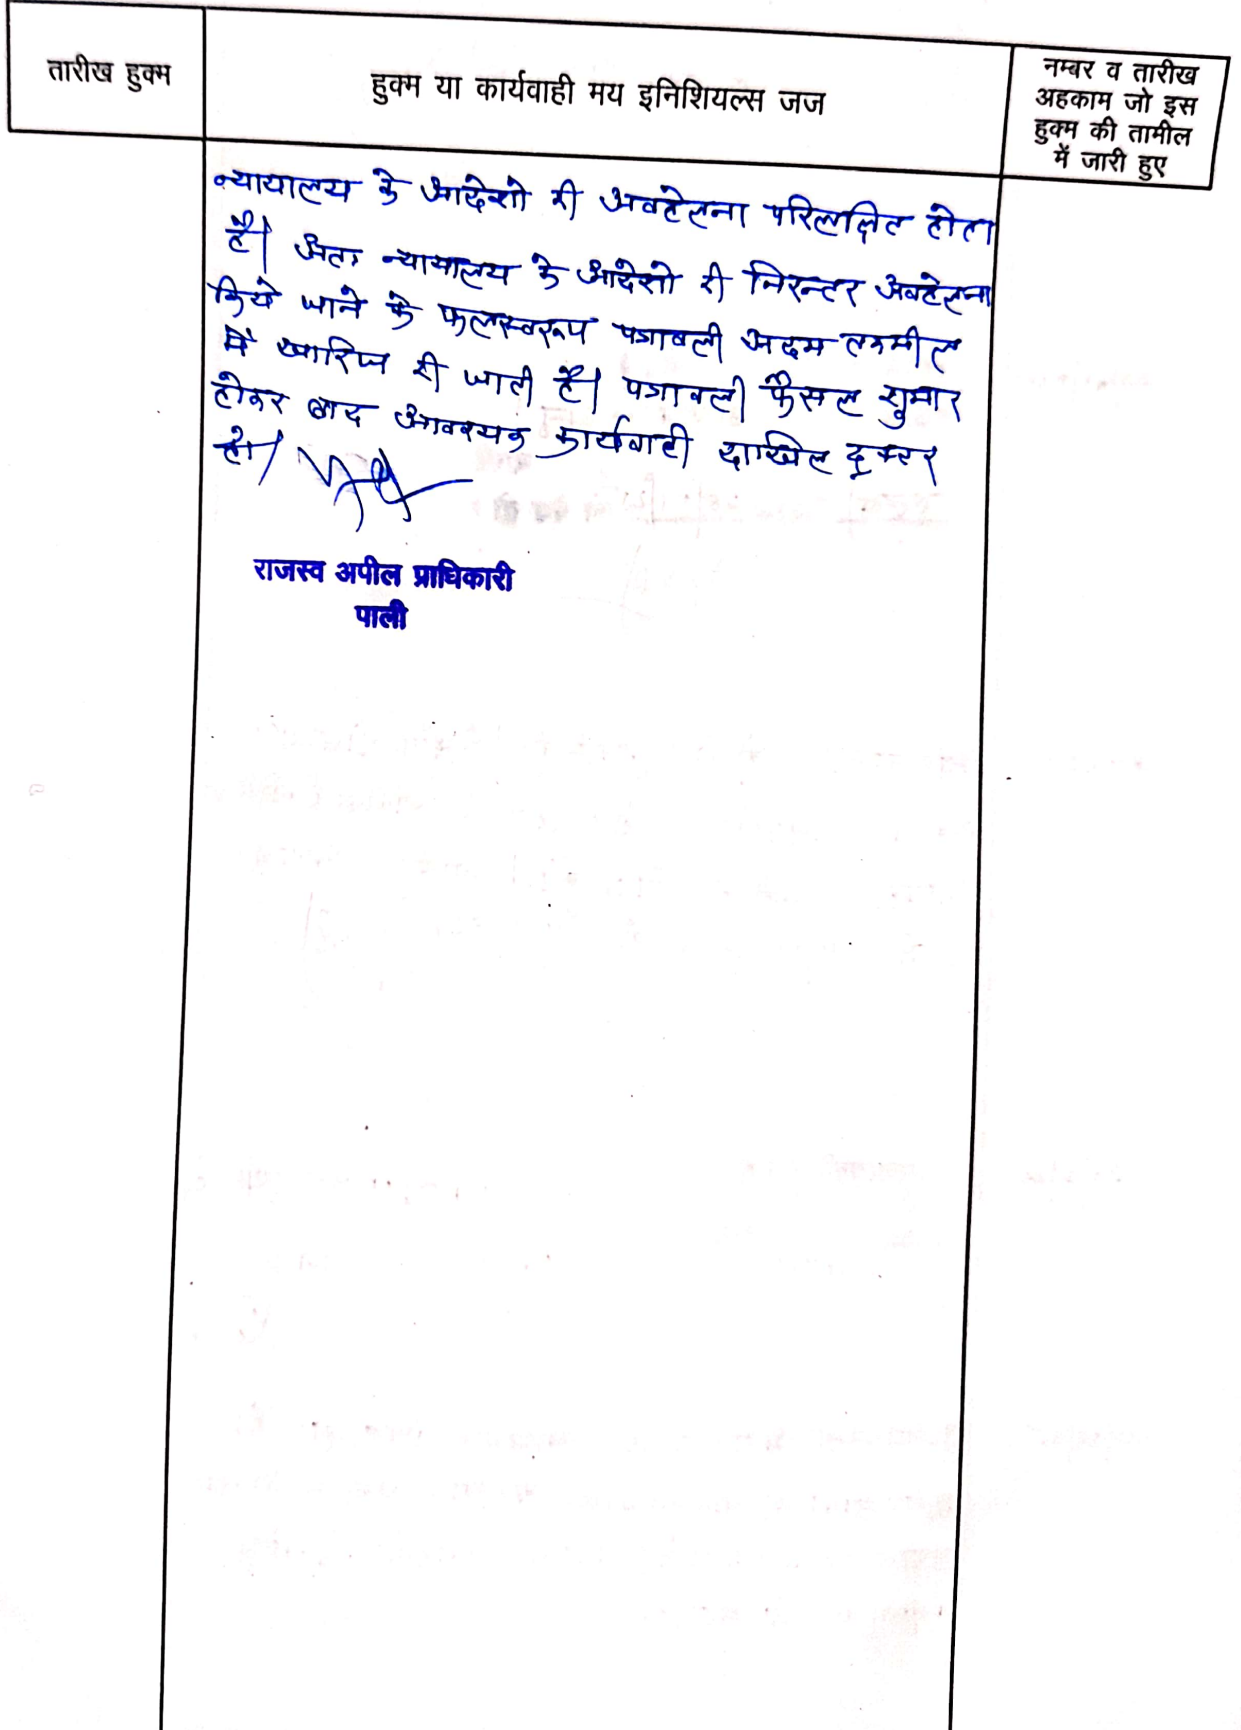 तारीख हुक्म
हुक्म या कार्यवाही मय इनिशियल्स जज
नम्बर व तारीख
अहकाम जो इस
हुक्म की तामील
में जारी हुए
न्यायालय के आदेशो की अवहेलना परिलक्षित होता
है। अतः न्यायालय के आदेशो की निरन्तर अवहेलना
किये जाने के फलस्वरूप पत्रावली अदम तकमील
में खारिज की जाती है। पत्रावली फैसल शुमार
होकर बाद आवश्यक कार्यवाही दाखिल दफ्तर
हो।
राजस्व अपील प्राधिकारी
पाली